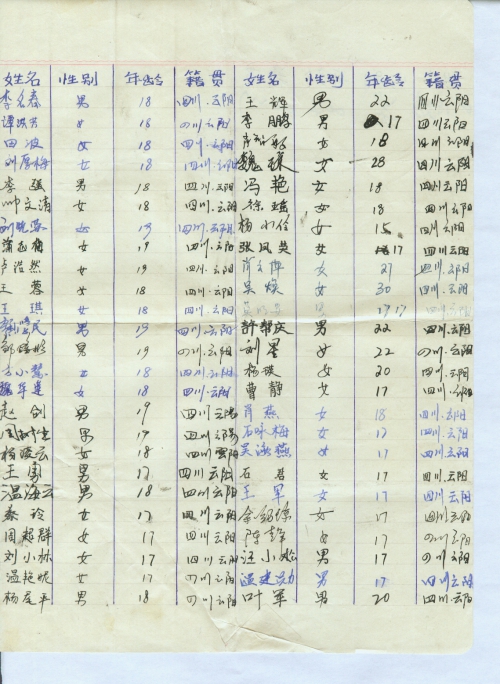 姓名 性别 年龄 籍贯 姓名 性别 年龄 籍贯
李名春 男 18 四川.云阳 王辉 男 22 四川云阳
谭 女 18 四川云阳 李鹏 男 17 四川云阳
田波 女 18 四川.云阳 女 18 四川云阳
刘厚梅 女 18 四川.云阳 魏 女 28 四川云阳
李强 男 18 四川.云阳 冯艳 女 18 四川云阳
帅文清 女 18 四川.云阳 徐 女 18 四川云阳
刘晓 女 四川.云阳 杨小伶 女 15 四川云阳
蒲 梅 女 19 四川.云阳 张凤英 女 17 四川云阳
卢浩然 女 19 四川.云阳 女 四川云阳
王蓉 女 18 四川.云阳 吴焕 女 30 四川云阳
王琪 女 18 四川.云阳 17 四川云阳
民 男 19 四川.云阳 许帮庆 男 22 四川.云阳
男 19 四川.云阳 刘星 女 22 四川.云阳
方小慧 女 18 四川.云阳 杨 女 20 四川.云阳
魏华莲 女 18 四川.云阳 曹静 女 17 四川.云阳
赵剑 男 19 四川.云阳 肖燕 女 18 四川.云阳
周 男 四川.云阳 石咏梅 女 17 四川.云阳
杨 云 女 18 四川.云阳 吴泳燕 女 17 四川云阳
王勇 男 17 四川云阳 石君 女 17 四川.云阳
温海云 男 18 四川.云阳 王军 女 17 四川云阳
秦玲 女 17 四川.云阳 余 琼 女 17 四川云阳
周超群 女 17 四川.云阳 陈静 女 17 四川云阳
刘小林 女 17 四川.云阳 汪小松 男 17 四川云阳
温艳妮 女 17 四川.云阳 温建勋 男 17 四川云阳
杨尾平 男 18 四川.云阳 叶军 男 20 四川.云阳